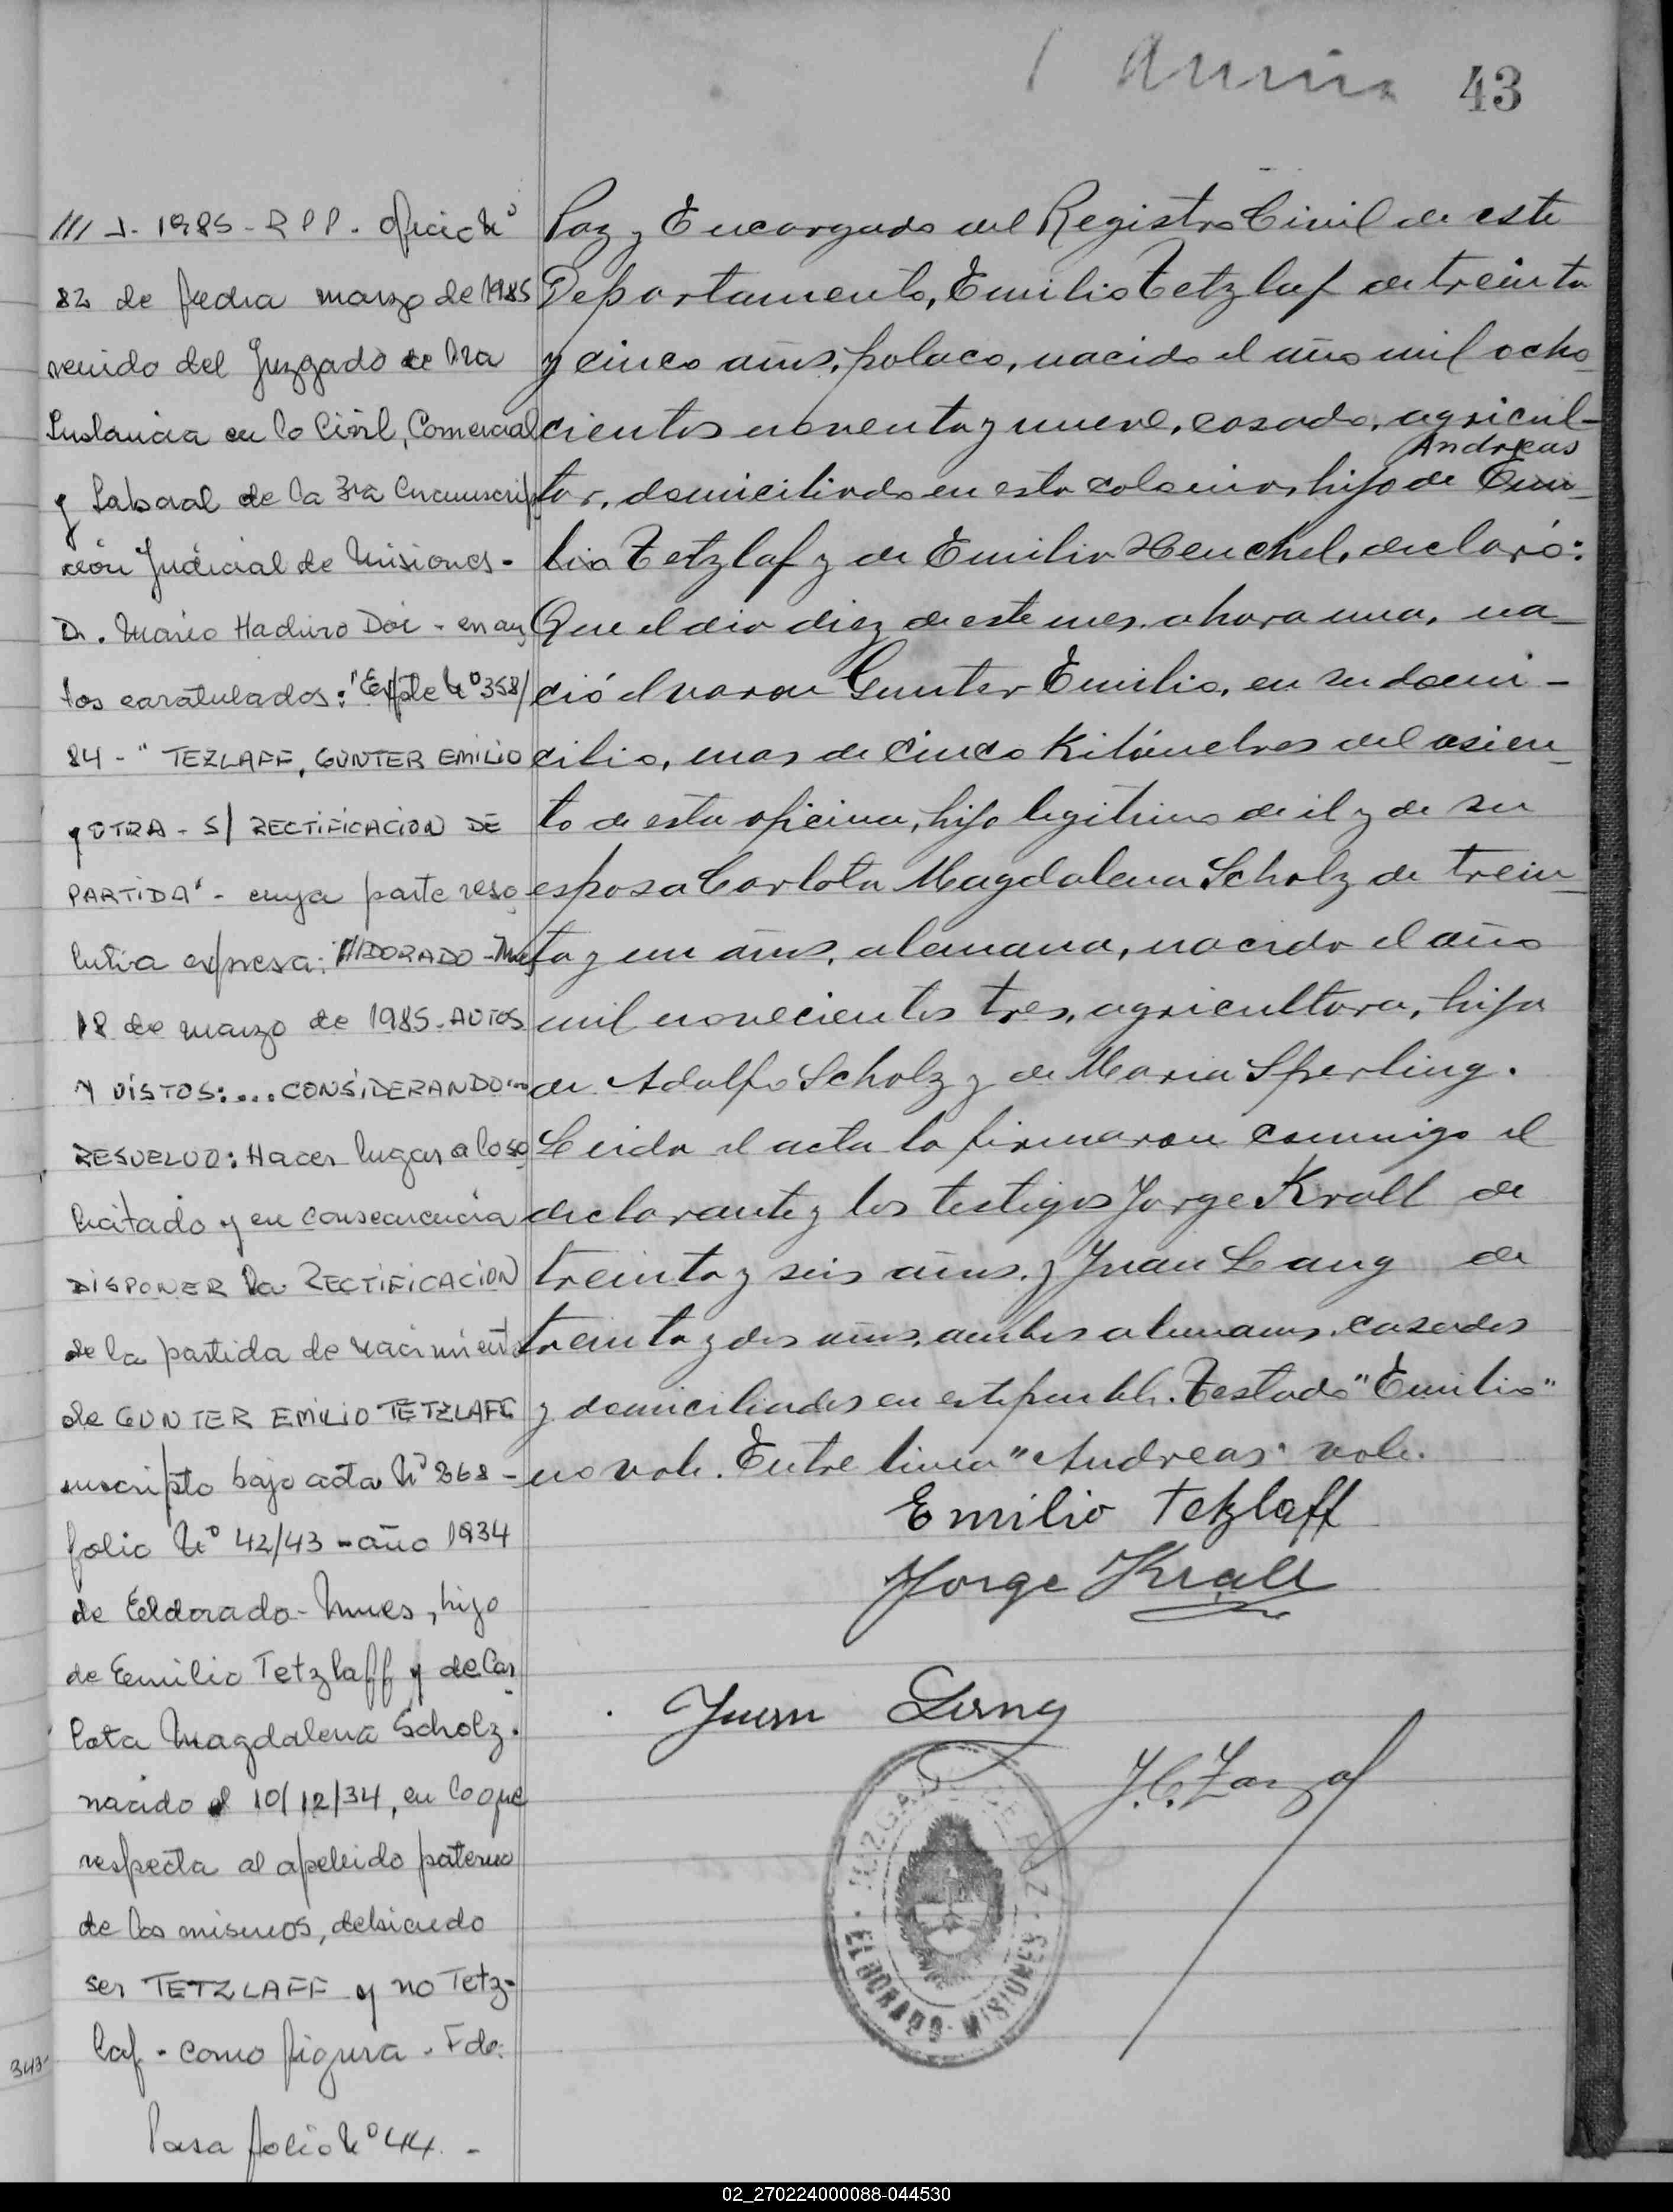 43
/// J. 1985 - R P P. oficio Nº
82 de fecha marzo de 1985
venido del Juzgado de 1ra
Instancia en lo Civil, Comercial
y Laboral de la 3ra Circunscrip
ción Judicial de Misiones -
Dr. Mario Haduro Doi - en au
tos caratulados: "Expte Nº 358/
84 - " TEZLAFF, GUNTER EMILIO
y OTRA - S/ RECTIFICACION DE
PARTIDA" - cuya parte reso
lutiva expresa: DORADO - Mnes
18 de marzo de 1985. AUTOS
Y VISTOS: ... CONSIDERANDO...
RESUELVO: Hacer lugar a lo so
licitado y en consecuencia
DISPONER la RECTIFICACION
de la partida de nacimiento
de GUNTER EMILIO TETZLAFF
inscripto bajo acta Nº 368 -
folio Nº 42/43 - año 1934
de Eldorado - Mnes, hijo
de Emilio Tetzlaff y de Car
lota Magdalena Scholz.
nacido el 10/12/34, en lo que
respecta al apellido paterno
de los mismos, debiendo
ser TETZLAFF y no Tetz-
laf - como figura. Fdo.
Pasa folio Nº 44. -
343-
Paz y Encargado del Registro Civil de este
Departamento, Emilio Tetzlaf de treinta
y cinco años, polaco, nacido el año mil ocho_
cientos noventa y nueve, casado, agricul-
Andreas
tor, domiciliado en esta colonia, hijo de Emi_
lio Tetzlaf y de Emilia Henchel, declaró:
Que el dia diez de este mes, a hora una, na_
ció el varon Gunter Emilio, en su domi-
cilio, mas de cinco Kilómetros del asien_
to de esta oficina, hijo legitimo de él y de su
esposa Carlota Magdalena Scholz de trein_
ta y un años, alemana, nacida el año
mil novecientos tres, agricultora, hija
de Adolfo Scholz y de Maria Sperling.
Leida el acta la firmaron conmigo el
declarante y los testigos Jorge Krall de
treinta y seis años, y Juan Lang de
treinta y dos años, ambos alemanes, casados
y domiciliados en este pueblo. Testado "Emilio"
no vale. Entre linea "Andreas" vale.
Emilio Tetzlaff
Jorge Krall
Juan Lang
JUZGADO DE PAZ
ELDORADO - MISIONES
02_270224000088-044530